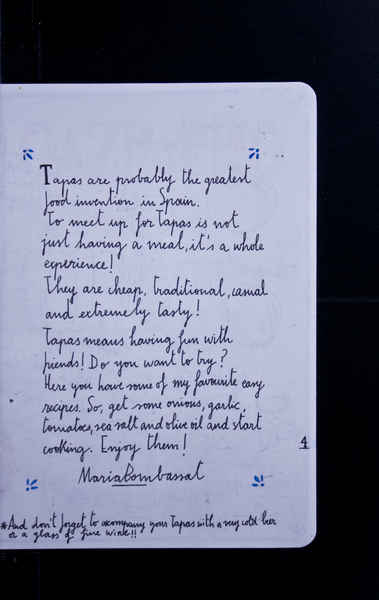 Tapas are probably the greatest
food invention in Spain.
To meet up for Tapas is not
just having a meal, it's a whole
experience!
They are cheap, traditional, casual
and extremely tasty!
Tapas means having fun with
friends! Do you want to try?
Here you have some of my favourite easy
recipes. So, get some onions, garlic,
tomatoes, sea salt and olive oil and start
cooking. Enjoy them!
4
Maria Bombassat
*And don't forget to acompany your Tapas with a very cold beer
or a glass of fine wine!!